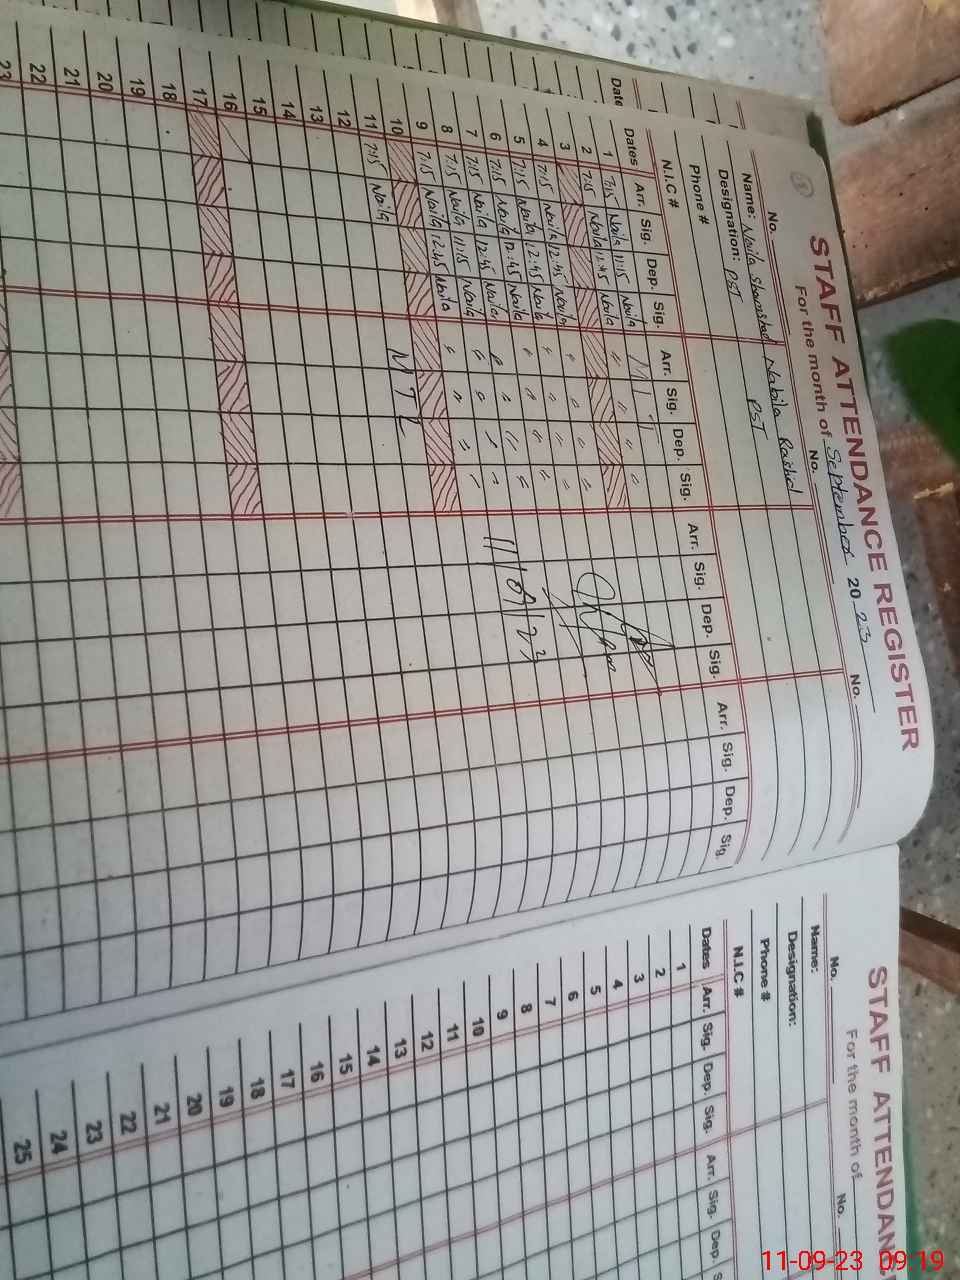 STAFF ATTENDANCE REGISTER
For the month of September 2023
No. No. No.
Name: Naila Shamshad Nabila Rashid
Designation: PST PST
Phone #
N.I.C #
Dates Arr. Sig. Dep. Sig. Arr. Sig. Dep. Sig. Arr. Sig. Dep. Sig. Arr. Sig. Dep. Sig.
1 7:15 Naila 11:15 Naila
2 7:15 Naila 12:45 Naila " " " "
3
4 7:15 Naila 12:45 Naila " " " "
5 7:15 Naila 12:45 Naila " " " "
6 7:15 Naila 12:45 Naila " " " "
7 7:15 Naila 12:45 Naila " " " "
8 7:15 Naila 11:15 Naila " " " "
9 7:15 Naila 12:45 Naila " " " "
10
11 7:15 Naila
12
13
14
15
16
17
18
19
20
21
22
23
11/09/23
Date
STAFF ATTENDANC
For the month of
No. No.
Name:
Designation:
Phone #
N.I.C #
Dates Arr. Sig. Dep. Sig. Arr. Sig. Dep. S
1
2
3
4
5
6
7
8
9
10
11
12
13
14
15
16
17
18
19
20
21
22
23
24
25
11-09-23 09:19